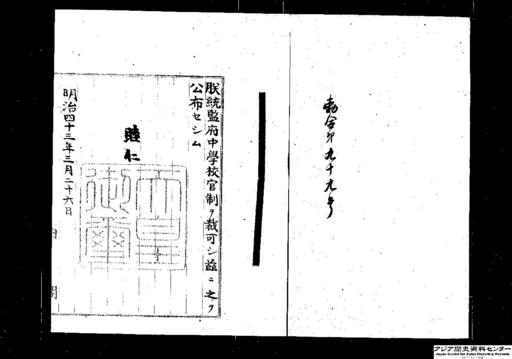 勅令第九十九号
朕統監府中學校官制ヲ裁可シ茲ニ之ヲ
公布セシム
睦仁
天皇御璽
明治四十三年三月二十六日
内閣
アジア歴史資料センター
Japan Center for Asian Historical Records